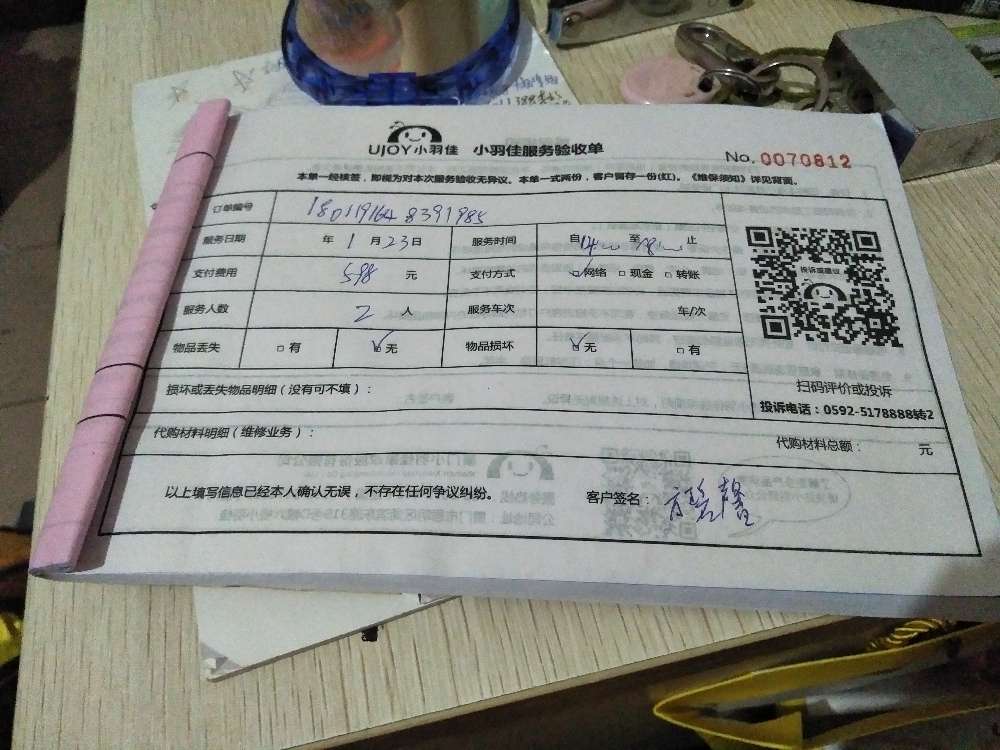 UJOY小羽佳 小羽佳服务验收单 No. 0070812
本单一经核签，即视为对本次服务验收无异议。本单一式两份，客户留存一份(红)。《维保须知》详见背面。
订单编号 1801191648391985
服务日期 年 1 月 23 日 服务时间 自 14:00 至 18:00 止
支付费用 598 元 支付方式 网络 现金 转账
服务人数 2 人 服务车次 车/次
物品丢失 有 无 物品损坏 无 有
投诉或建议
扫码评价或投诉
损坏或丢失物品明细（没有可不填）：
投诉电话：0592-5178888转2
代购材料明细（维修业务）： 代购材料总额： 元
以上填写信息已经本人确认无误，不存在任何争议纠纷。 客户签名：